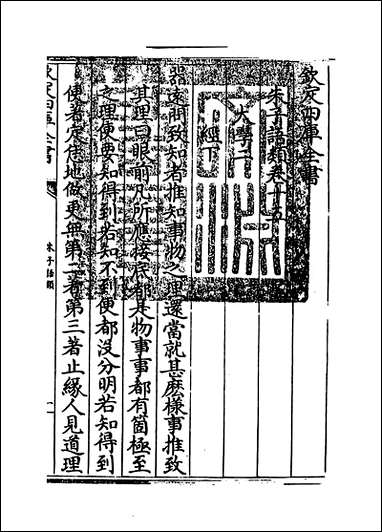 欽定四庫全書
朱子語類卷十五
大學二
經下
器遠問致知者推知事物之理還當就甚麽樣事推致
其理曰眼前凡所應接底都是物事事都有箇極至
之理便要知得到若知不到便都沒分明若知得到
便著定恁地做更無第二著第三著止緣人見道理
欽定四庫全書
朱子語類